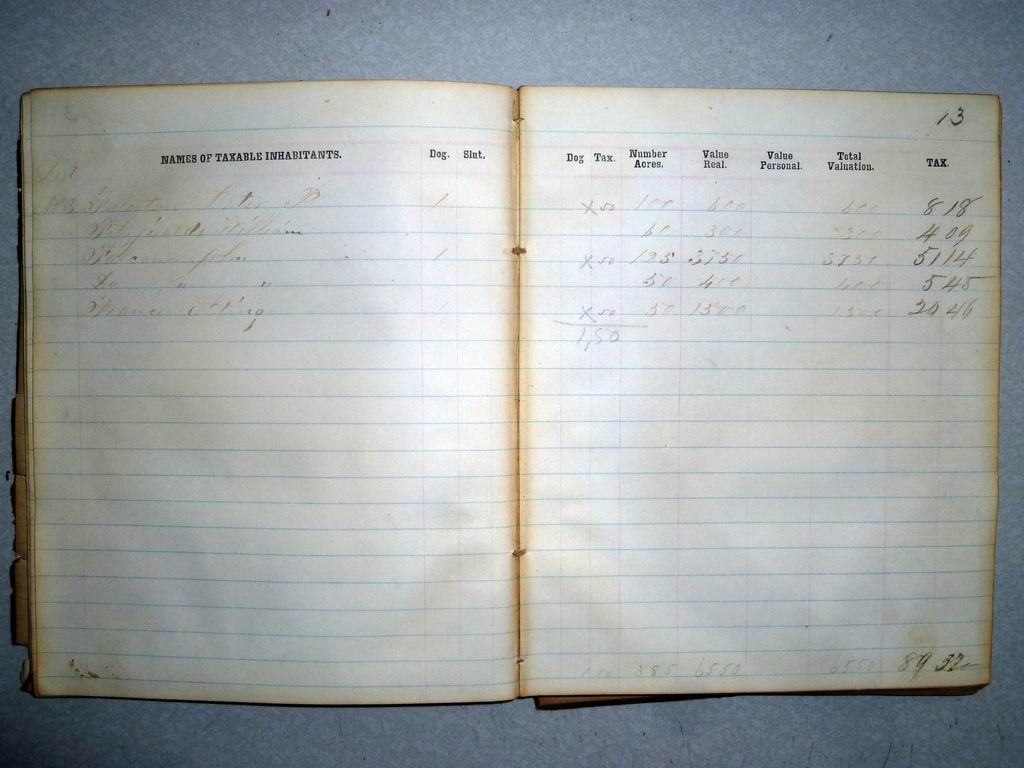 13
NAMES OF TAXABLE INHABITANTS. Dog. Slut. Dog Tax. Number Acres. Value Real. Value Personal. Total Valuation. TAX.
Peter P 1 X 50 100 600 600 8 18
William 60 300 300 4 09
John 1 X 50 125 3750 3750 51 14
Do " " 50 400 400 5 45
X 50 50 1500 1500 20 46
1,50
1 50 385 6550 6550 89 32